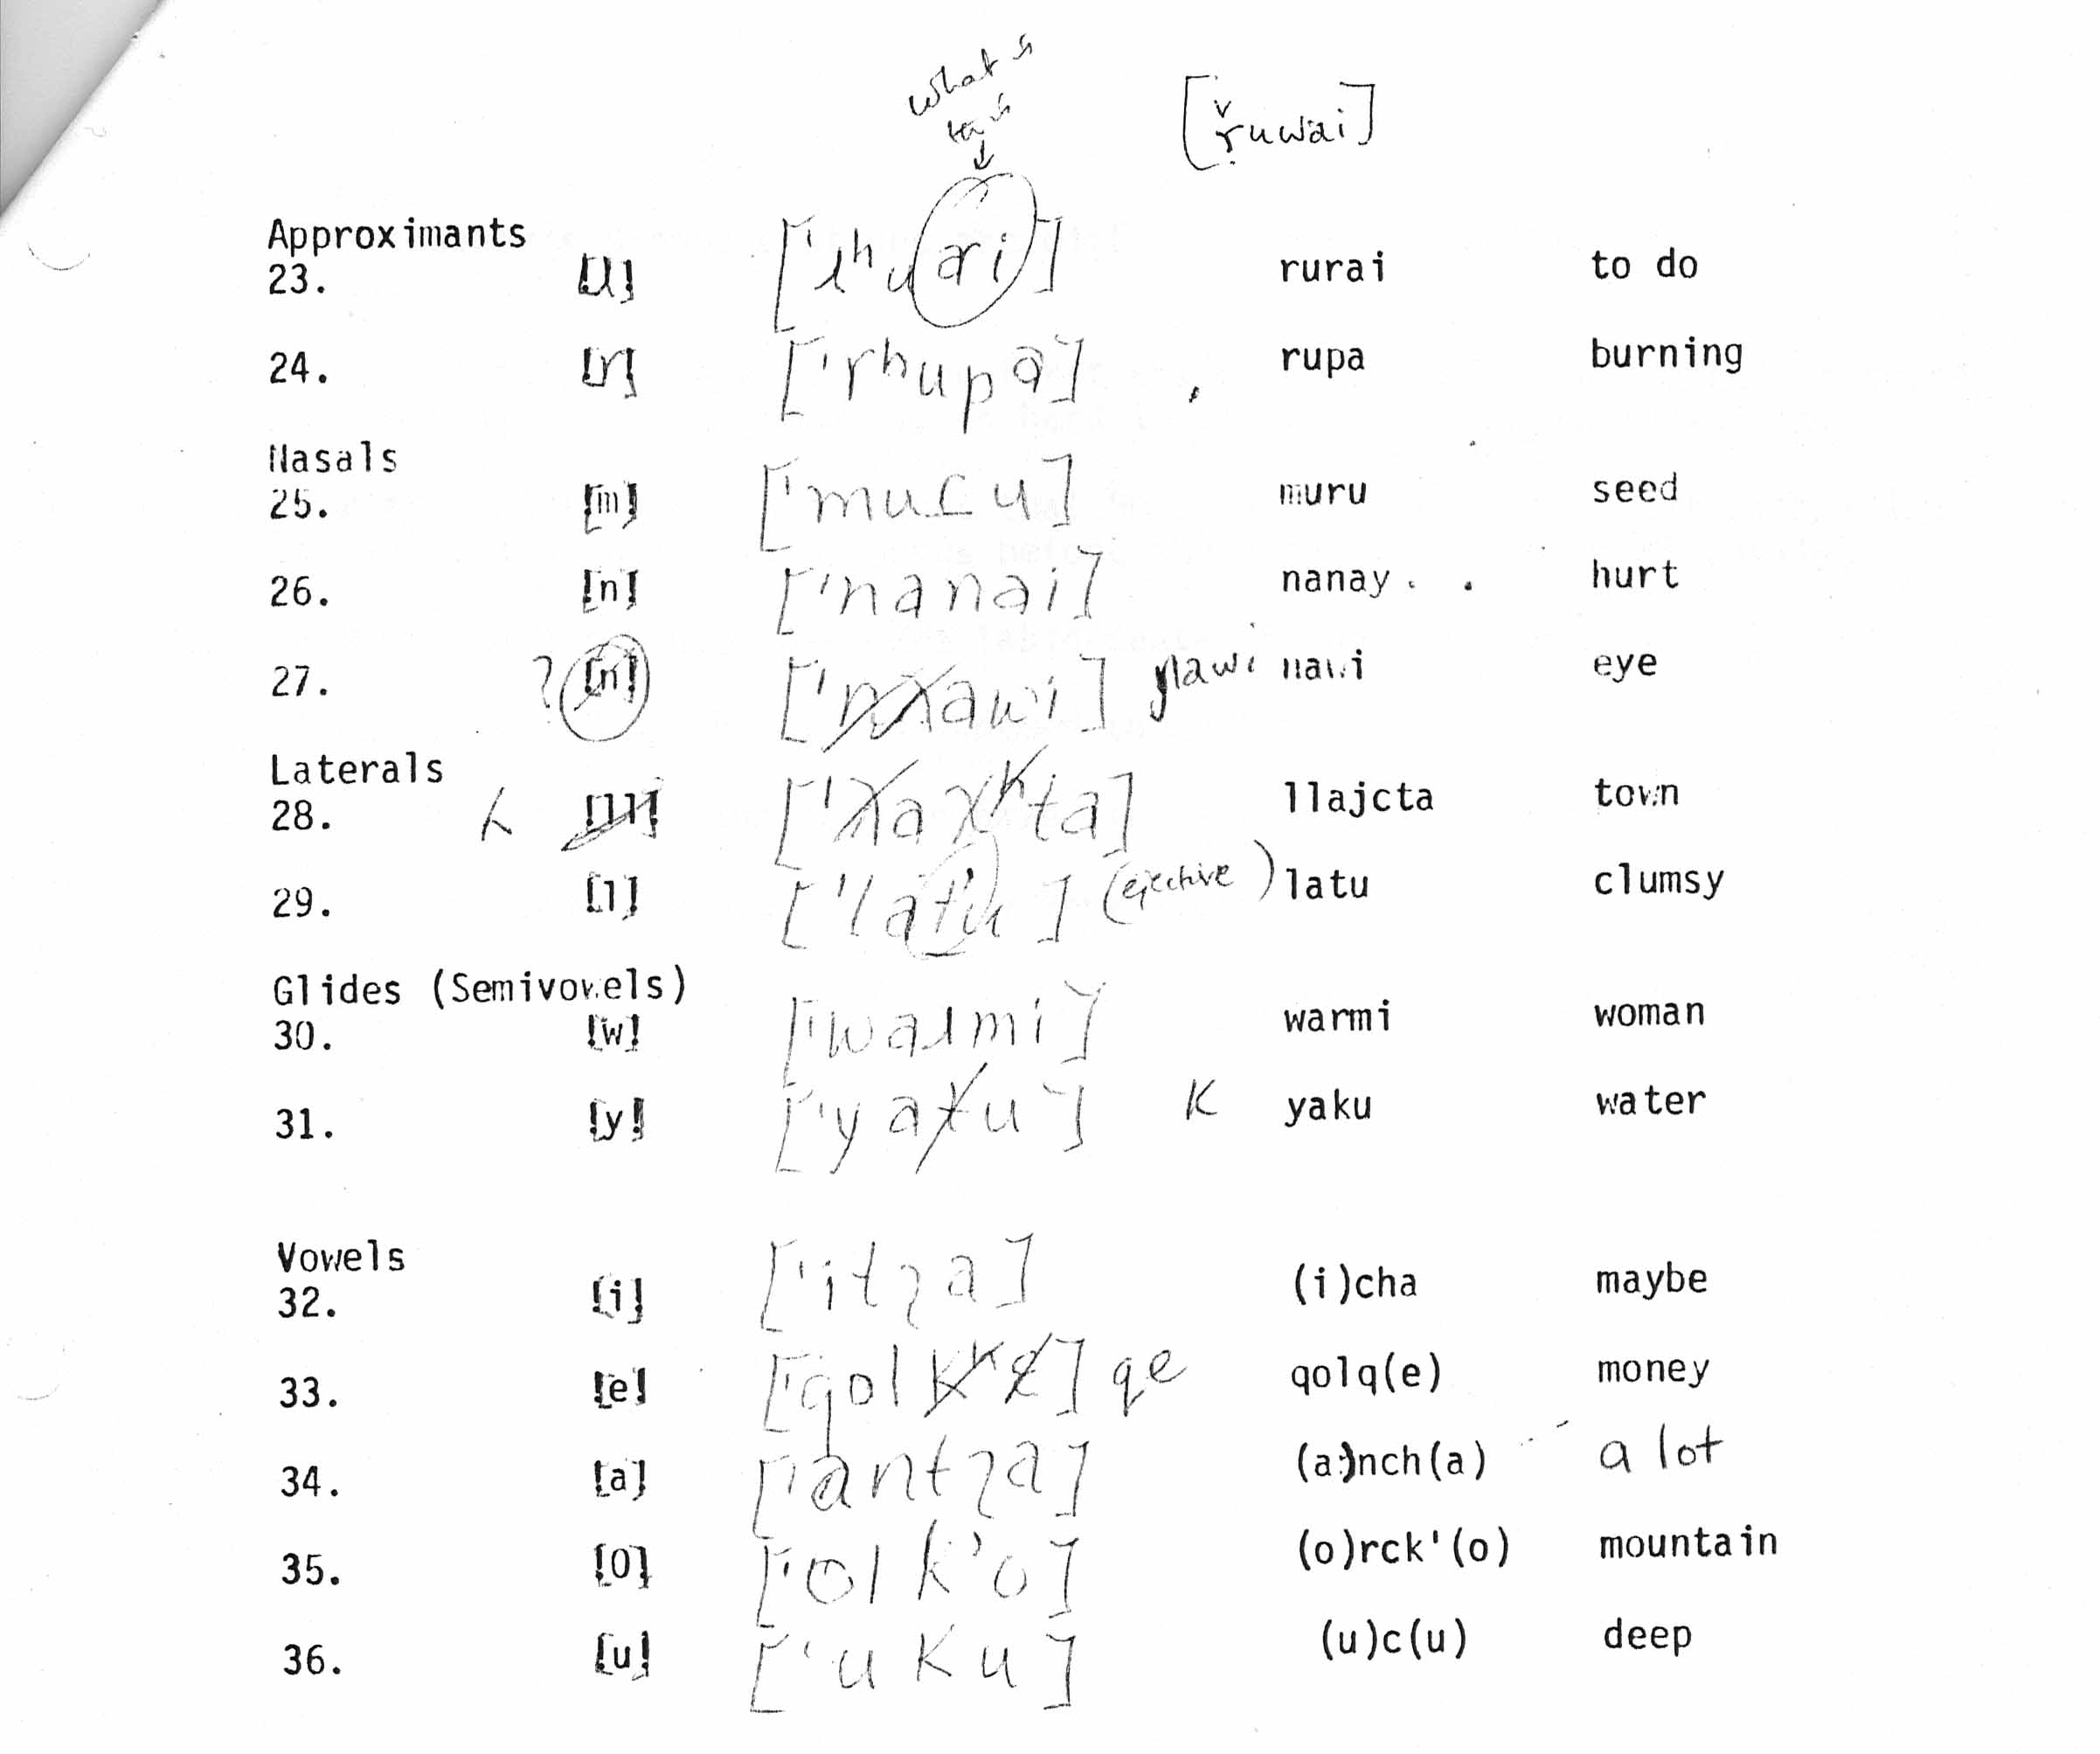 What is
this
↓
[ṛ̌uwai]
Approximants
23. [ɹ] ['ɹʰuari] rurai to do
24. [r] ['rʰupa] rupa burning
Nasals
25. [m] ['muɾu] muru seed
26. [n] ['nanai] nanay hurt
27. ? [ɲ] awi] ɲawi nawi eye
Laterals
28. ʎ [ll] ['ʎaxᵏta] llajcta town
29. [l] ['lat'u] (ejective) latu clumsy
Glides (Semivowels)
30. [w] ['waɹmi] warmi woman
31. [y] ['yaxu] K yaku water
Vowels
32. [i] ['itʂa] (i)cha maybe
33. [e] ['qolkᵏe] qe qolq(e) money
34. [a] ['antʂa] (a)nch(a) a lot
35. [O] ['olk'o] (o)rck'(o) mountain
36. [u] ['uku] (u)c(u) deep